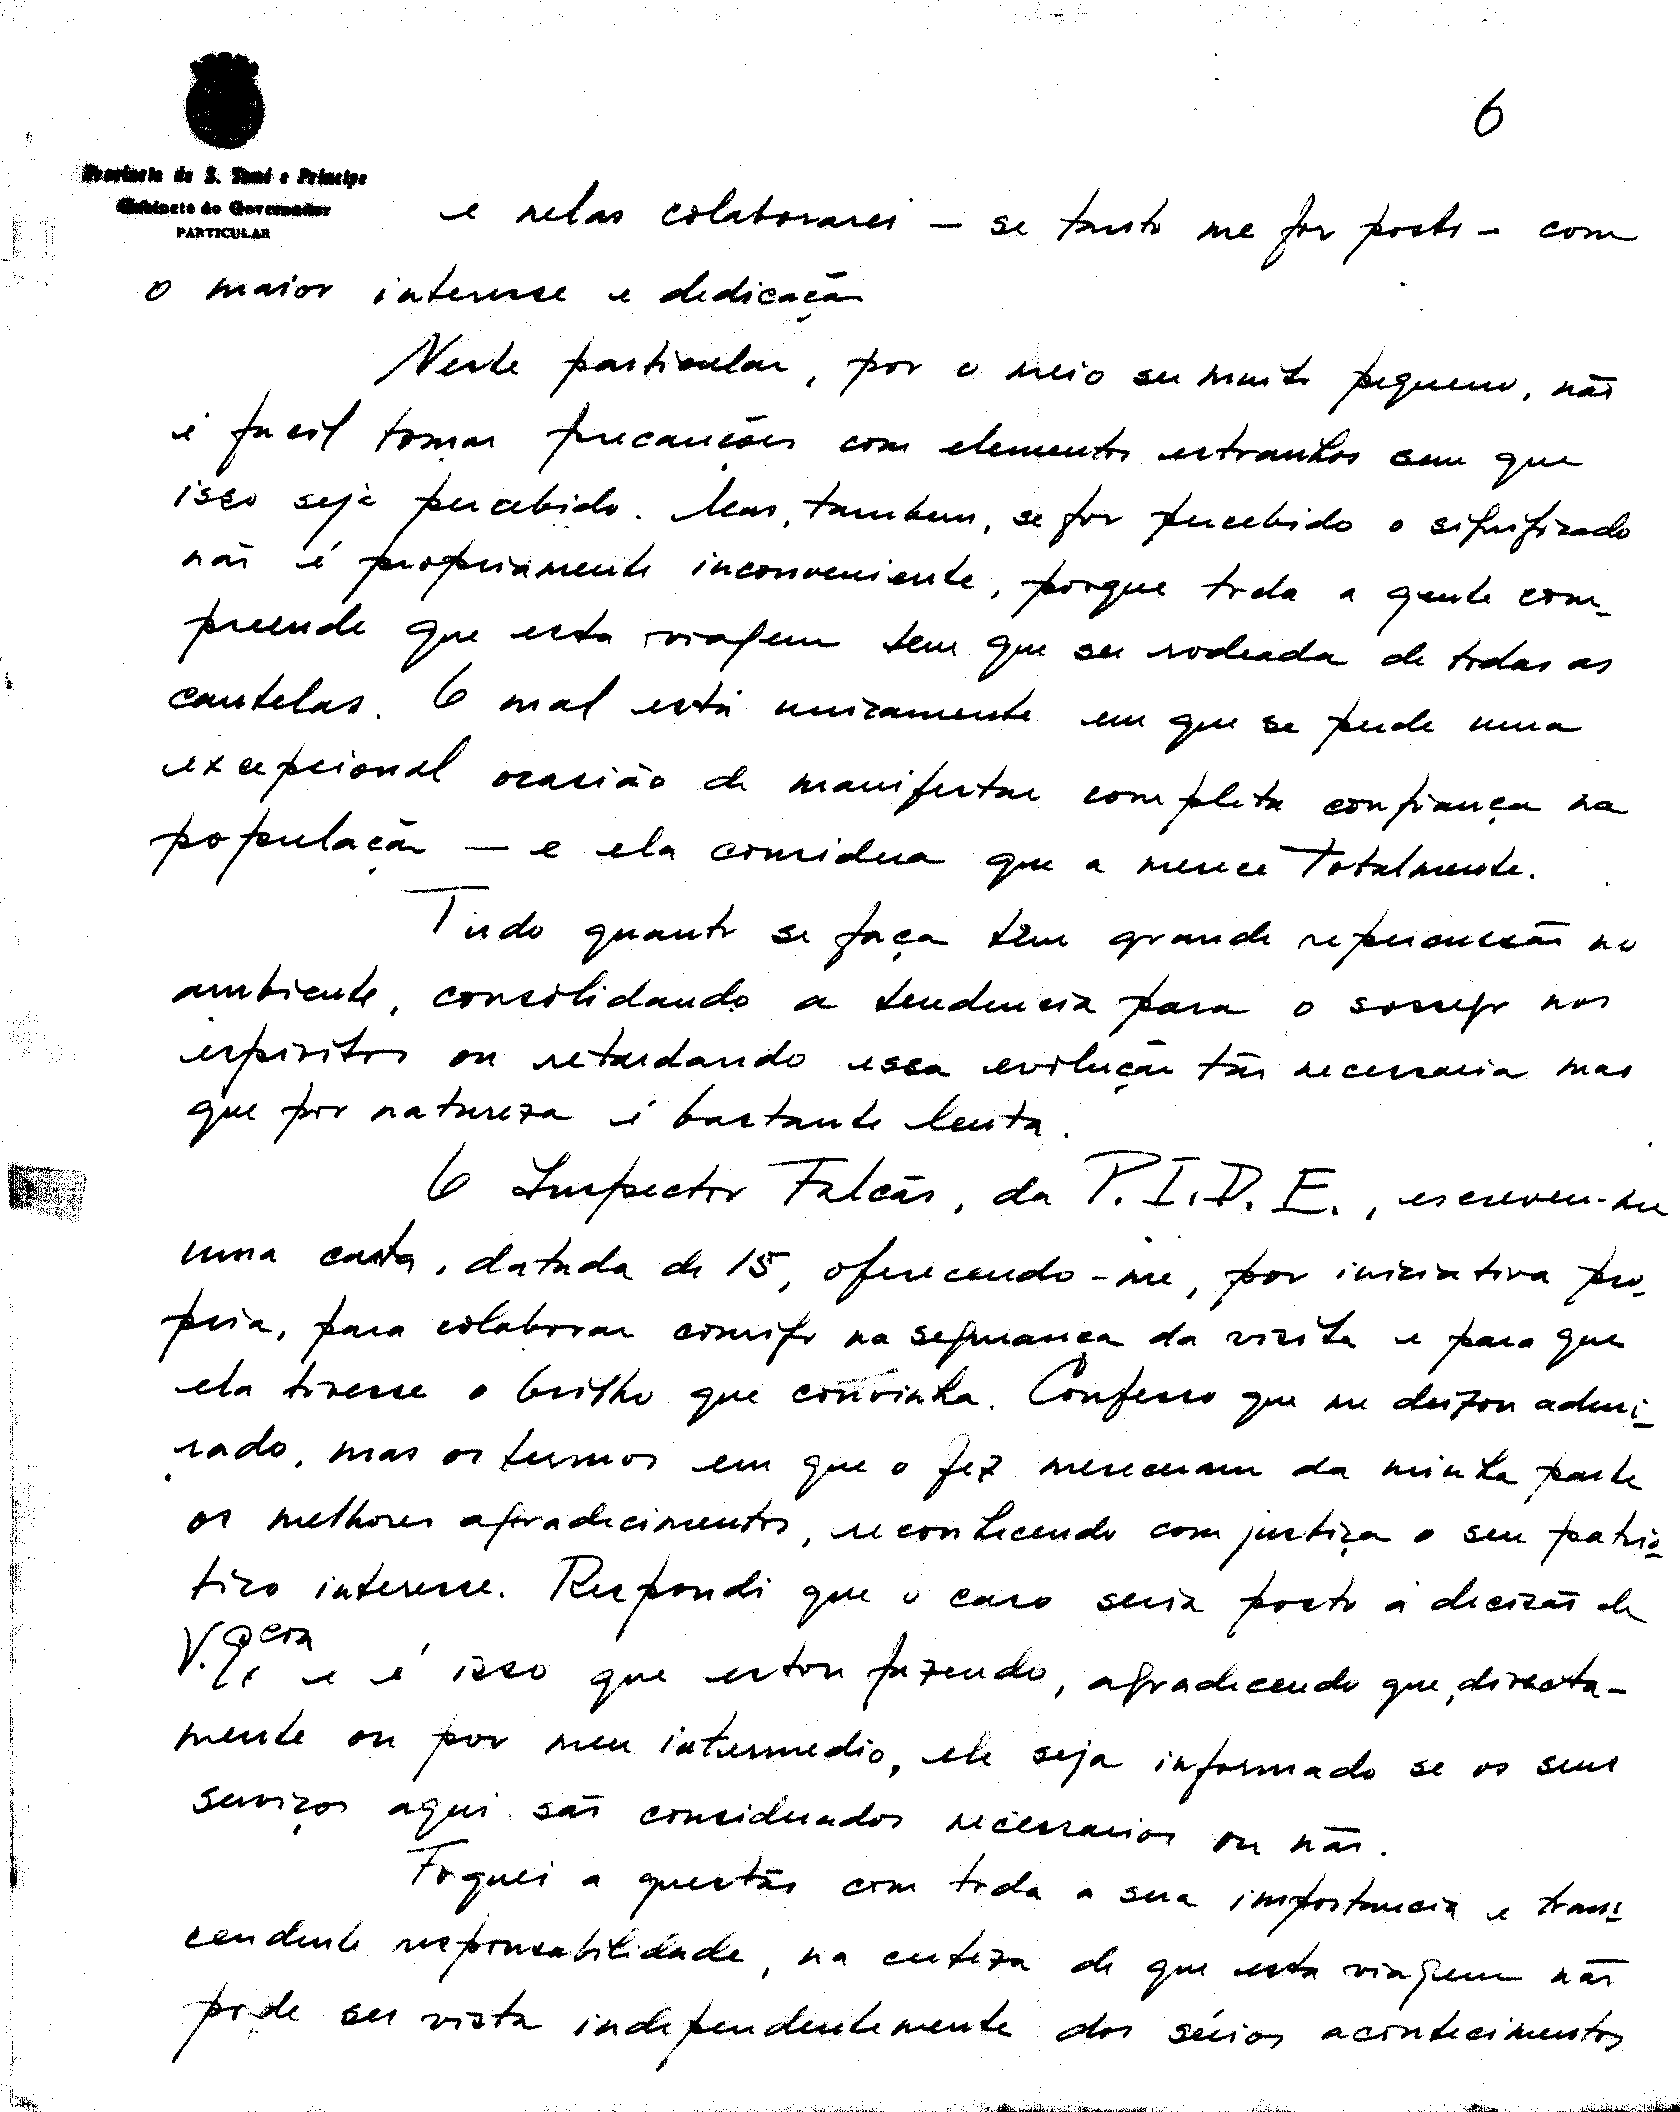 6
Provincia de S. Tomé e Príncipe
Gabinete do Governador
PARTICULAR
e nelas colaborarei – se tanto me for posto – com
o maior interesse e dedicação
Neste particular, por o meio ser muito pequeno, não
é facil tomar precauções com elementos estranhos sem que
isso seja percebido. Mas, tambem, se for percebido o significado
não é propriamente inconveniente, porque toda a gente com-
preende que esta viagem tem que ser rodeada de todas as
cautelas. O mal está unicamente em que se perde uma
excepcional ocasião de manifestar completa confiança na
população – e ela considera que a merece totalmente.
Tudo quanto se faça têm grande repercussão no
ambiente, consolidando a tendencia para o sossego nos
espiritos ou retardando essa evolução tão necessaria mas
que por natureza é bastante lenta.
O Inspector Falcão, da P.I.D.E., escreveu-me
uma carta, datada de 15, oferecendo-me, por iniciativa pro-
pria, para colaborar comigo na segurança da visita e para que
ela tivesse o brilho que convinha. Confesso que me deixou admi-
rado, mas os termos em que o fez mereceram da minha parte
os melhores agradecimentos, reconhecendo com justiça o seu patrió-
tico interesse. Respondi que o caso seria posto à decisão de
V. Excia e é isso que estou fazendo, agradecendo que, directa-
mente ou por meu intermedio, ele seja informado se os seus
serviços aqui são considerados necessarios ou não.
Foquei a questão com toda a sua importancia e trans-
cendente responsabilidade, na certeza de que esta viagem não
pode ser vista independentemente dos sérios acontecimentos